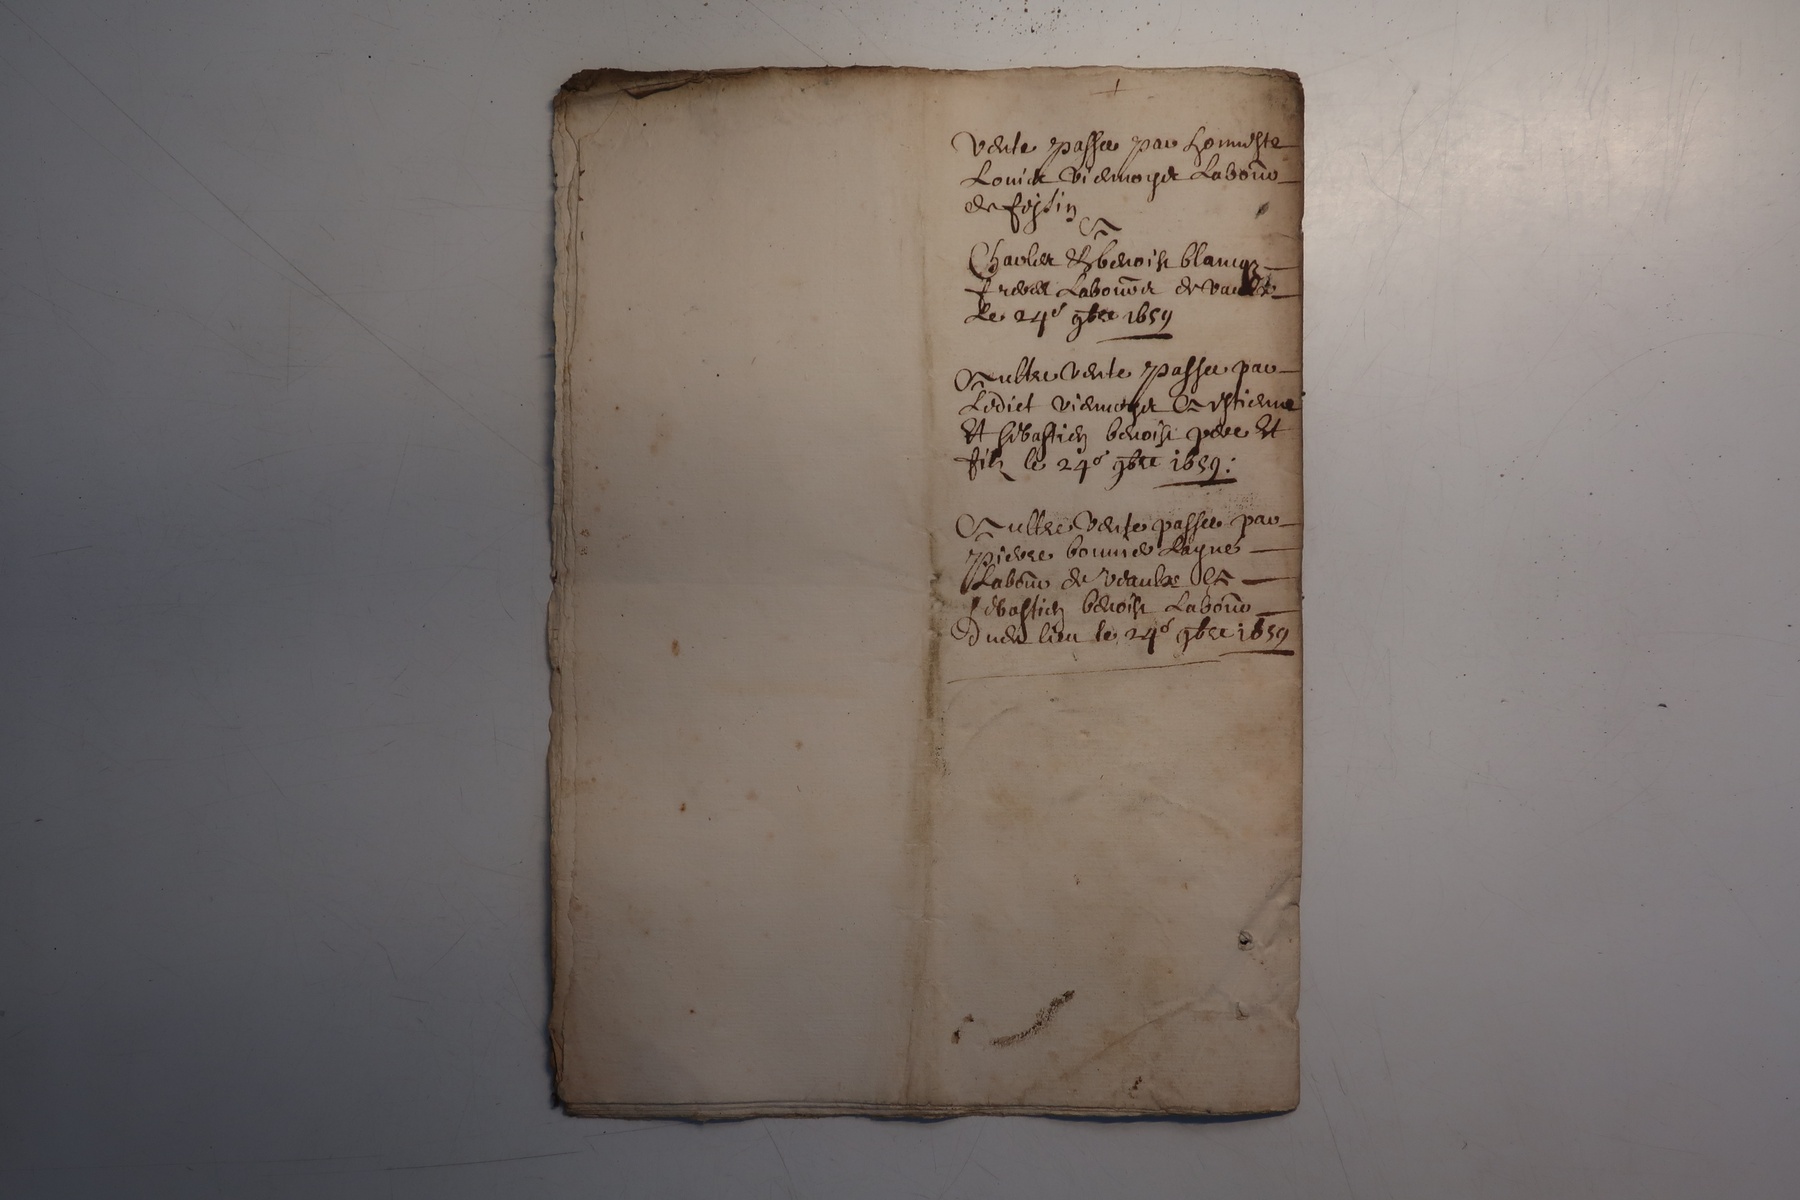 +
Vente passee par honneste
Louis Viemoyet Labōur
de
A
Charles Et benoist blancz
freres Labōur de Vaulx
le 24e 9bre 1659
Aultre Vente passee par
Ledict Viemoyet A Estienne
Et Sebastien benoist pere Et
filz le 24e 9bre 1659:
Aultre Vente passee par
Pierre bonnier Layne
Labōur de Veaulx A
Sebastien benoist Labōur
Dud lieu le 24e 9bre 1659